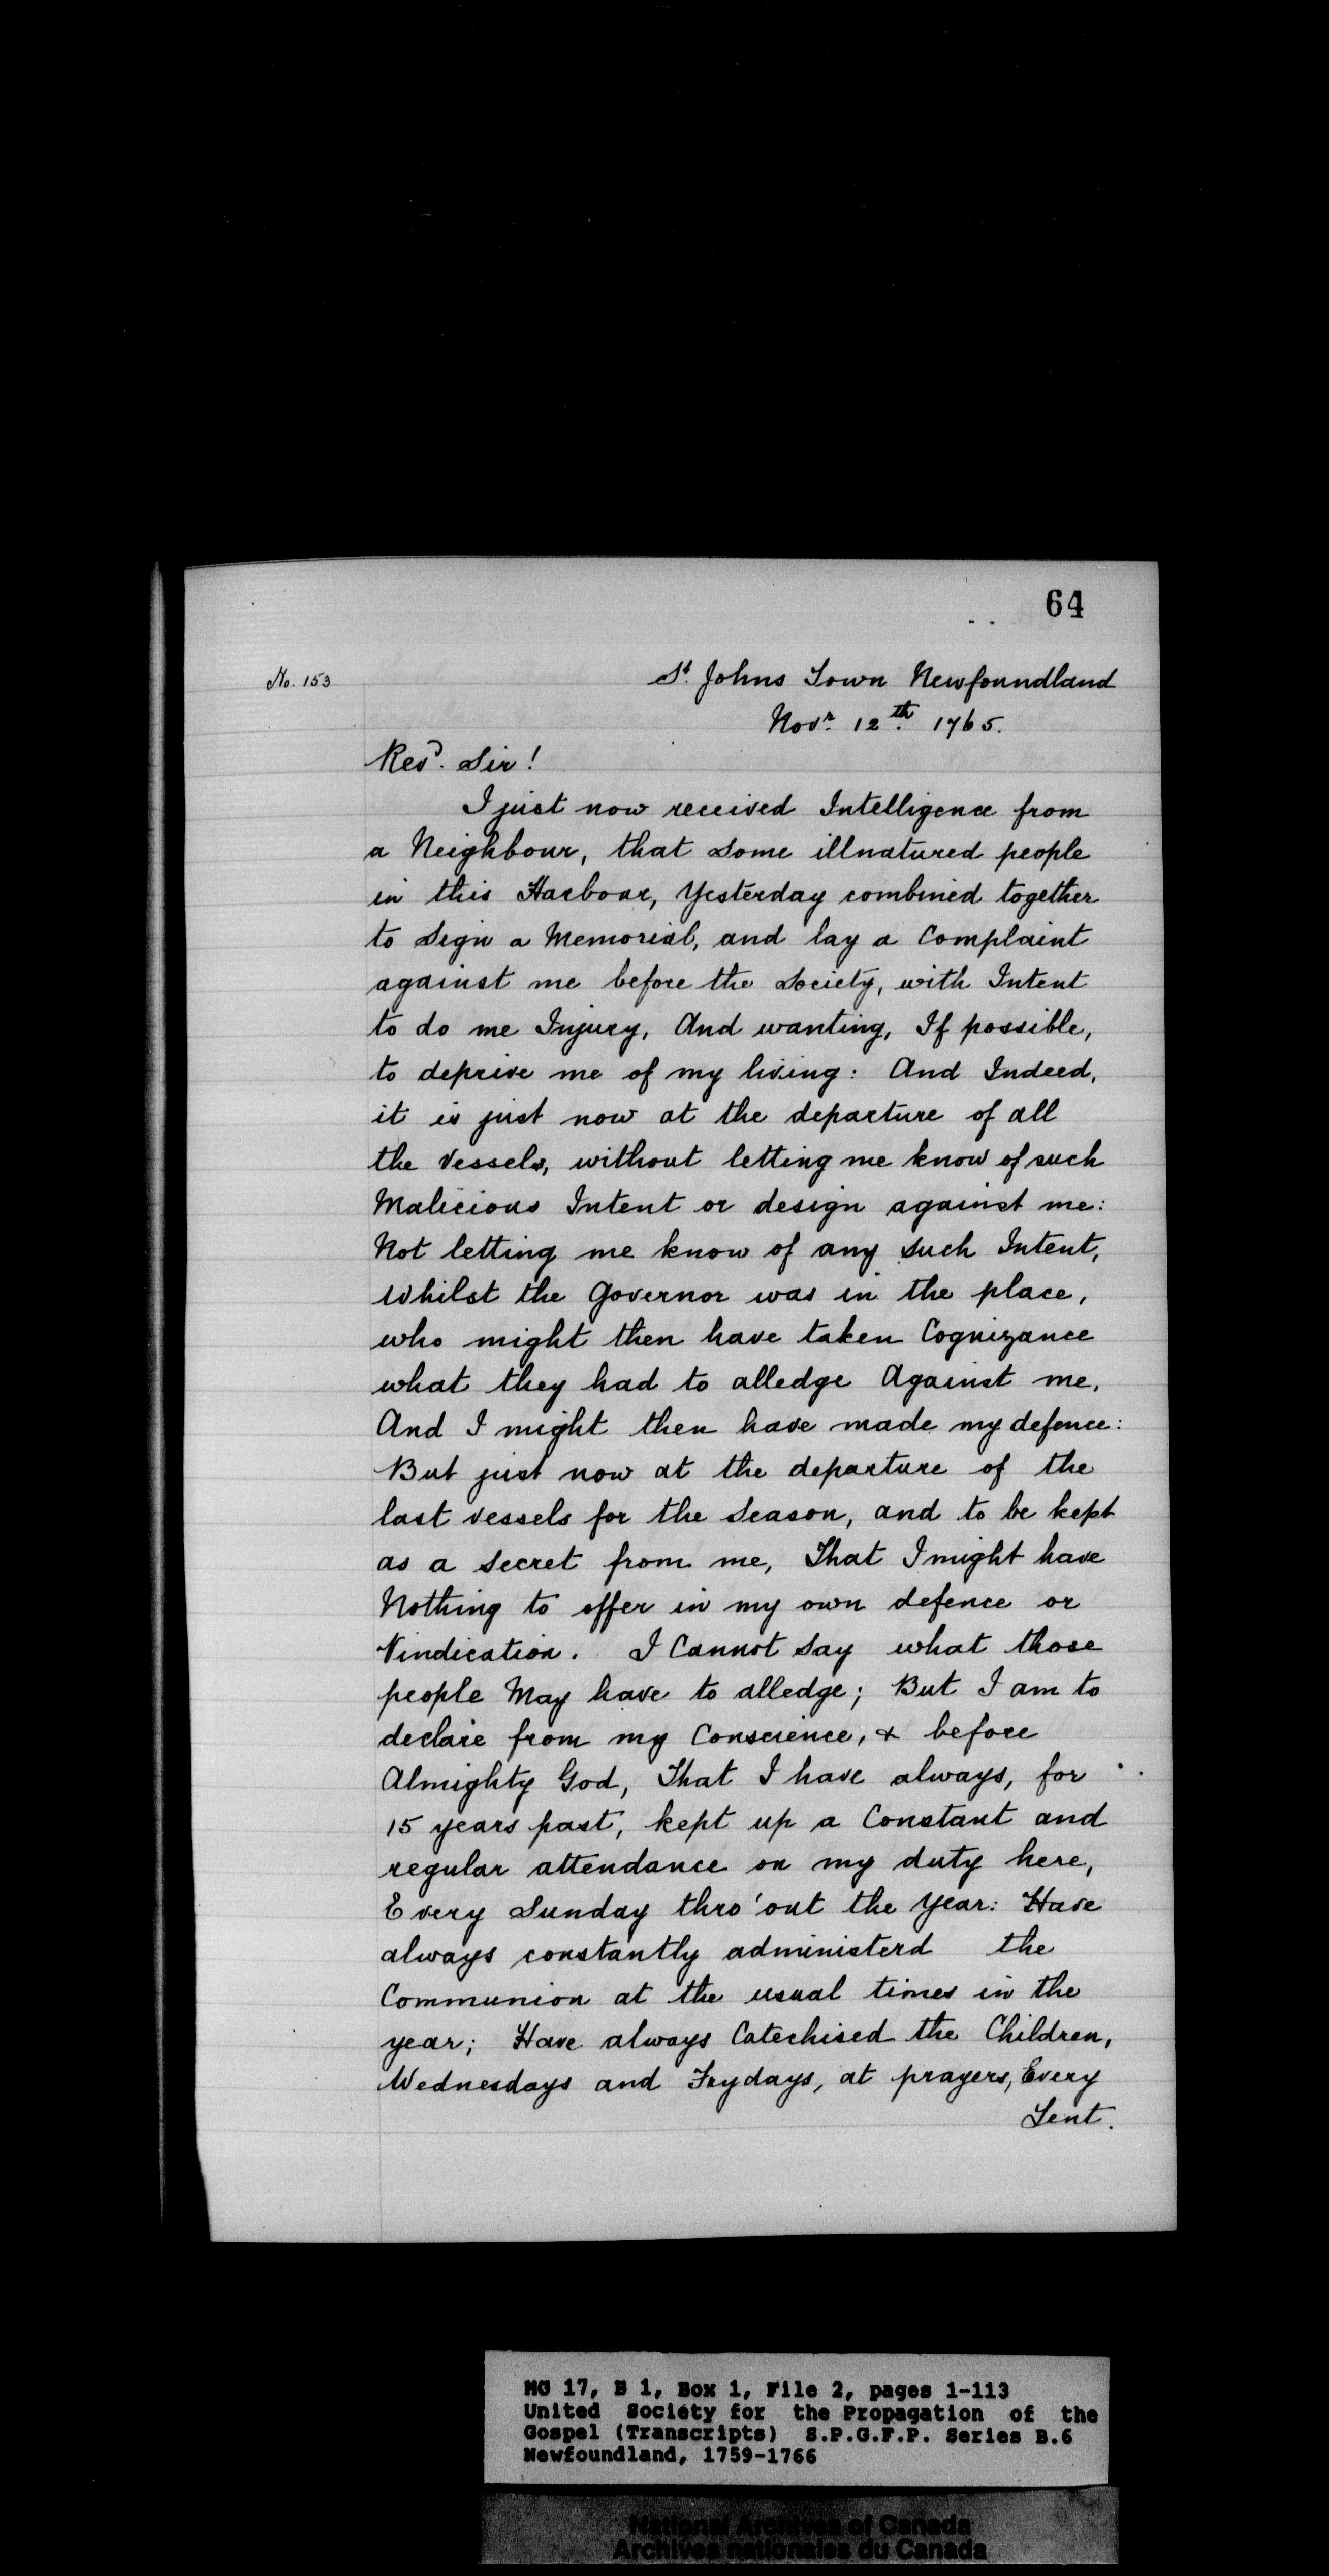 64
No. 153
St. Johns Town Newfoundland
Novr. 12th. 1765.
Revd. Sir!
I just now received Intelligence from
a Neighbour, that Some illnatured people
in this Harbour, Yesterday combined together
to Sign a Memorial, and lay a Complaint
against me before the Society, with Intent
to do me Injury, And wanting, If possible,
to deprive me of my living: And Indeed,
it is just now at the departure of all
the Vessels, without letting me know of such
Malicious Intent or design against me:
Not letting me know of any such Intent,
Whilst the Governor was in the place,
who might then have taken Cognizance
what they had to alledge Against me,
And I might then have made my defence:
But just now at the departure of the
last vessels for the Season, and to be kept
as a Secret from me, That I might have
Nothing to offer in my own defence or
Vindication. I Cannot Say what those
people May have to alledge; But I am to
declare from my Conscience, & before
Almighty God, That I have always, for
15 years past, kept up a Constant and
regular attendance on my duty here,
Every Sunday thro'out the Year: Have
always constantly administerd the
Communion at the usual times in the
year; Have always Catechised the Children,
Wednesdays and Frydays, at prayers, Every
Lent.
MG 17, B 1, Box 1, File 2, pages 1-113
United Society for the Propagation of the
Gospel (Transcripts) S.P.G.F.P. Series B.6
Newfoundland, 1759-1766
National Archives of Canada
Archives nationales du Canada